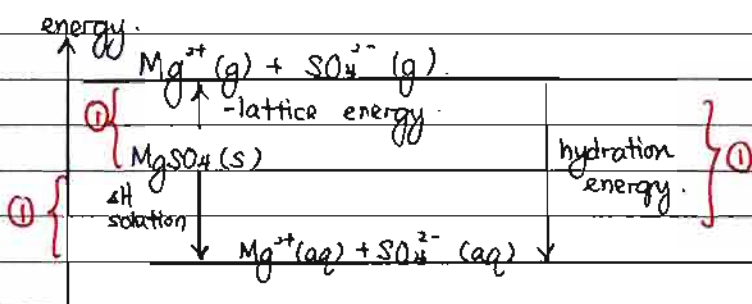 energy.
Mg²⁺(g) + SO₄²⁻(g).
① -lattice energy.
MgSO₄(s)
hydration energy. ①
① ΔH solution
Mg²⁺(aq) + SO₄²⁻ (aq)